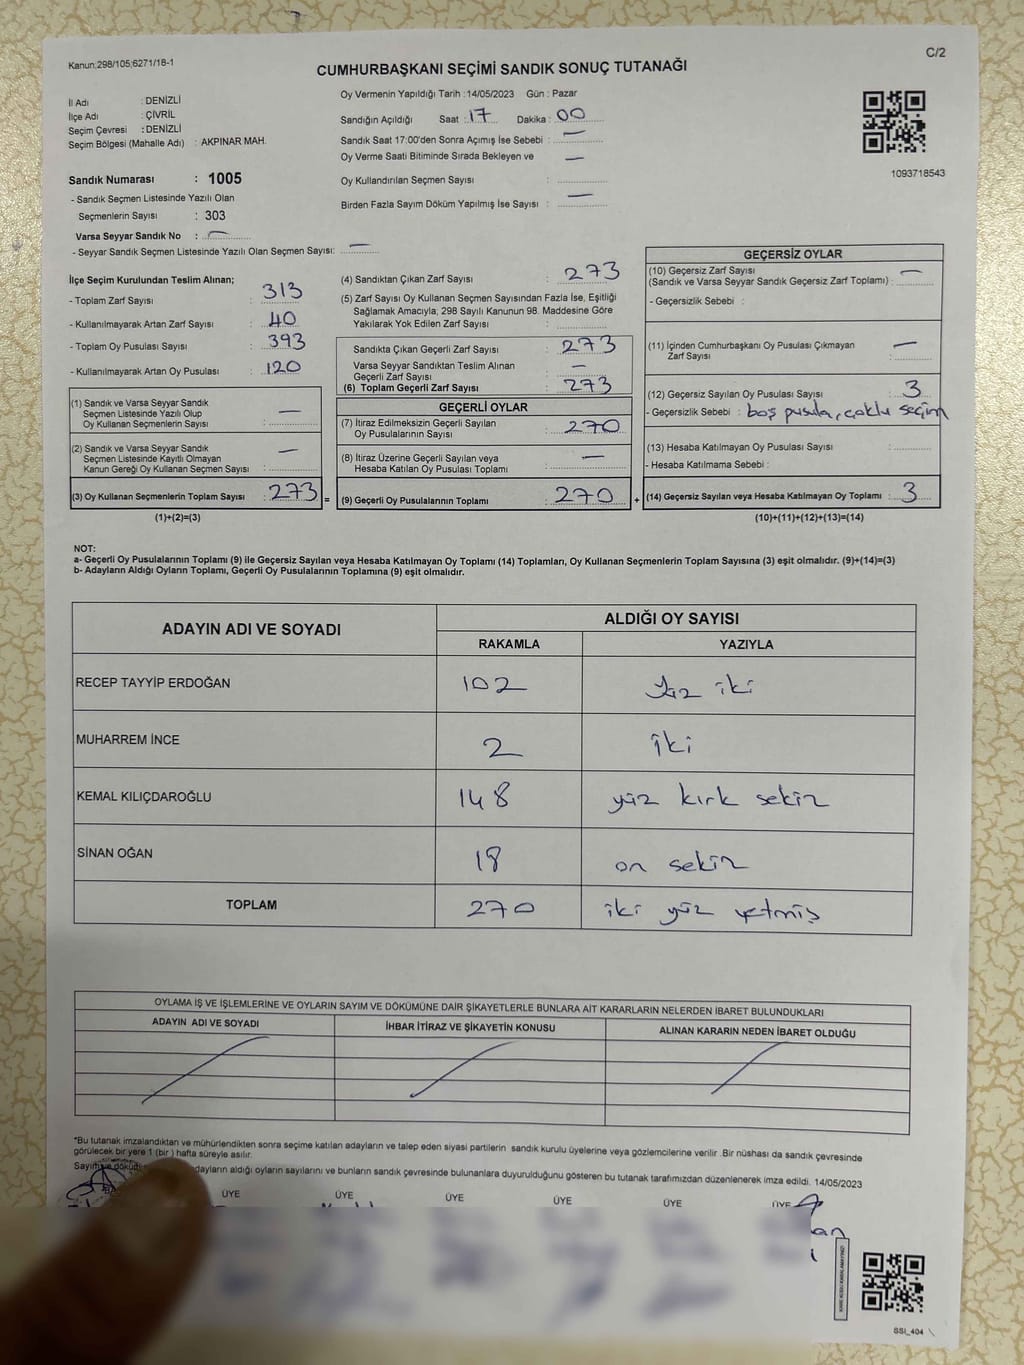 Kanun;298/105;6271/18-1
C/2
CUMHURBAŞKANI SEÇİMİ SANDIK SONUÇ TUTANAĞI
İl Adı : DENİZLİ
İlçe Adı : ÇİVRİL
Seçim Çevresi : DENİZLİ
Seçim Bölgesi (Mahalle Adı) : AKPINAR MAH.
Sandık Numarası : 1005
- Sandık Seçmen Listesinde Yazılı Olan
Seçmenlerin Sayısı : 303
Varsa Seyyar Sandık No : —
- Seyyar Sandık Seçmen Listesinde Yazılı Olan Seçmen Sayısı: —
Oy Vermenin Yapıldığı Tarih :14/05/2023 Gün : Pazar
Sandığın Açıldığı Saat : 17 Dakika : 00
Sandık Saat 17:00'den Sonra Açımış İse Sebebi : —
Oy Verme Saati Bitiminde Sırada Bekleyen ve —
Oy Kullandırılan Seçmen Sayısı :
Birden Fazla Sayım Döküm Yapılmış İse Sayısı : —
1093718543
İlçe Seçim Kurulundan Teslim Alınan;
- Toplam Zarf Sayısı : 313
- Kullanılmayarak Artan Zarf Sayısı : 40
- Toplam Oy Pusulası Sayısı : 393
- Kullanılmayarak Artan Oy Pusulası : 120
(1) Sandık ve Varsa Seyyar Sandık
Seçmen Listesinde Yazılı Olup
Oy Kullanan Seçmenlerin Sayısı : —
(2) Sandık ve Varsa Seyyar Sandık
Seçmen Listesinde Kayıtlı Olmayan
Kanun Gereği Oy Kullanan Seçmen Sayısı : —
(3) Oy Kullanan Seçmenlerin Toplam Sayısı : 273 =
(1)+(2)=(3)
(4) Sandıktan Çıkan Zarf Sayısı : 273
(5) Zarf Sayısı Oy Kullanan Seçmen Sayısından Fazla İse, Eşitliği
Sağlamak Amacıyla, 298 Sayılı Kanunun 98. Maddesine Göre
Yakılarak Yok Edilen Zarf Sayısı :
Sandıkta Çıkan Geçerli Zarf Sayısı : 273
Varsa Seyyar Sandıktan Teslim Alınan
Geçerli Zarf Sayısı : —
(6) Toplam Geçerli Zarf Sayısı : 273
GEÇERLİ OYLAR
(7) İtiraz Edilmeksizin Geçerli Sayılan
Oy Pusulalarının Sayısı : 270
(8) İtiraz Üzerine Geçerli Sayılan veya
Hesaba Katılan Oy Pusulası Toplamı : —
(9) Geçerli Oy Pusulalarının Toplamı : 270 +
GEÇERSİZ OYLAR
(10) Geçersiz Zarf Sayısı
(Sandık ve Varsa Seyyar Sandık Geçersiz Zarf Toplamı) : —
- Geçersizlik Sebebi :
(11) İçinden Cumhurbaşkanı Oy Pusulası Çıkmayan
Zarf Sayısı : —
(12) Geçersiz Sayılan Oy Pusulası Sayısı : 3
- Geçersizlik Sebebi : boş pusula, çoklu seçim
(13) Hesaba Katılmayan Oy Pusulası Sayısı :
- Hesaba Katılmama Sebebi :
(14) Geçersiz Sayılan veya Hesaba Katılmayan Oy Toplamı : 3
(10)+(11)+(12)+(13)=(14)
NOT:
a- Geçerli Oy Pusulalarının Toplamı (9) ile Geçersiz Sayılan veya Hesaba Katılmayan Oy Toplamı (14) Toplamları, Oy Kullanan Seçmenlerin Toplam Sayısına (3) eşit olmalıdır. (9)+(14)=(3)
b- Adayların Aldığı Oyların Toplamı, Geçerli Oy Pusulalarının Toplamına (9) eşit olmalıdır.
ADAYIN ADI VE SOYADI
ALDIĞI OY SAYISI
RAKAMLA YAZIYLA
RECEP TAYYİP ERDOĞAN 102 yüz iki
MUHARREM İNCE 2 iki
KEMAL KILIÇDAROĞLU 148 yüz kırk sekiz
SİNAN OĞAN 18 on sekiz
TOPLAM 270 iki yüz yetmiş
OYLAMA İŞ VE İŞLEMLERİNE VE OYLARIN SAYIM VE DÖKÜMÜNE DAİR ŞİKAYETLERLE BUNLARA AİT KARARLARIN NELERDEN İBARET BULUNDUKLARI
ADAYIN ADI VE SOYADI İHBAR İTİRAZ VE ŞİKAYETİN KONUSU ALINAN KARARIN NEDEN İBARET OLDUĞU
*Bu tutanak imzalandıktan ve mühürlendikten sonra seçime katılan adayların ve talep eden siyasi partilerin sandık kurulu üyelerine veya gözlemcilerine verilir .Bir nüshası da sandık çevresinde
görülecek bir yere 1 (bir ) hafta süreyle asılır.
Sayım ve döküm adayların aldığı oyların sayılarını ve bunların sandık çevresinde bulunanlara duyurulduğunu gösteren bu tutanak tarafımızdan düzenlenerek imza edildi. 14/05/2023
ÜYE ÜYE ÜYE ÜYE ÜYE ÜYE
SSİ_404